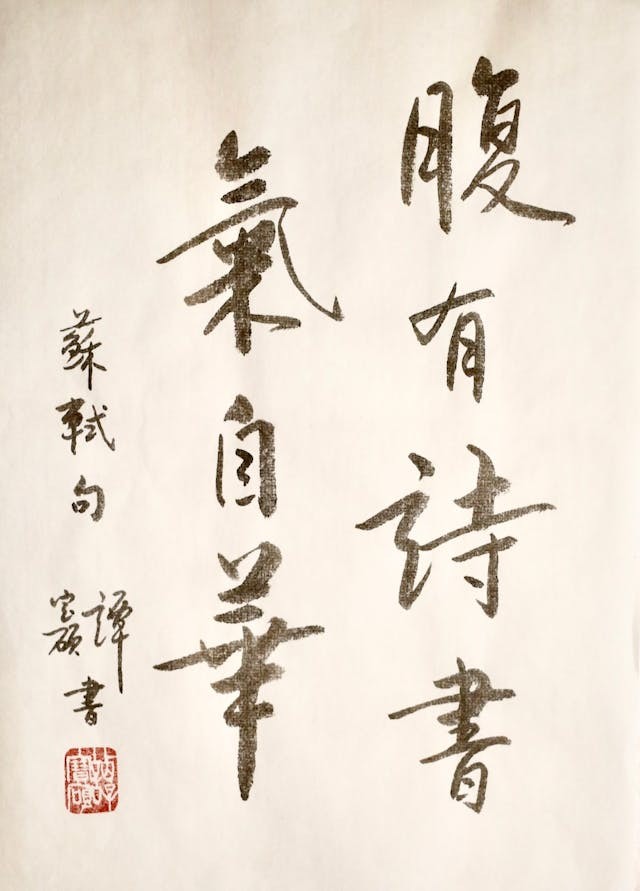 腹有詩書
氣自華
蘇軾句 譚宝碩書
寶碩